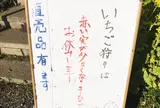 いちご狩りは
赤い実が少なくなったので
お休みします
直売品有ります